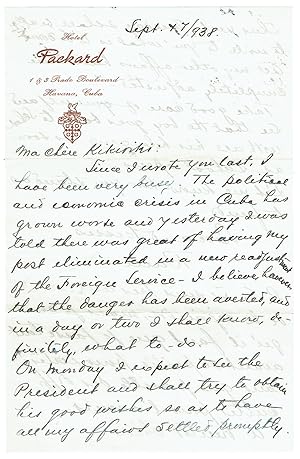 Sept. 17/938.
Hotel
Packard
1 & 3 Prado Boulevard
Havana, Cuba
Ma chère Kikioski:
Since I wrote you last, I
have been very busy. The political
and economic crisis in Cuba has
grown worse and yesterday I was
told there was great of having my
post eliminated in a new readjustment
of the Foreign Service - I believe however
that the danger has been averted, and
in a day or two I shall know, de-
finitely, what to-do.
On Monday I expect to see the
President and shall try to obtain
his good wishes so as to have
all my affairs settled promptly.